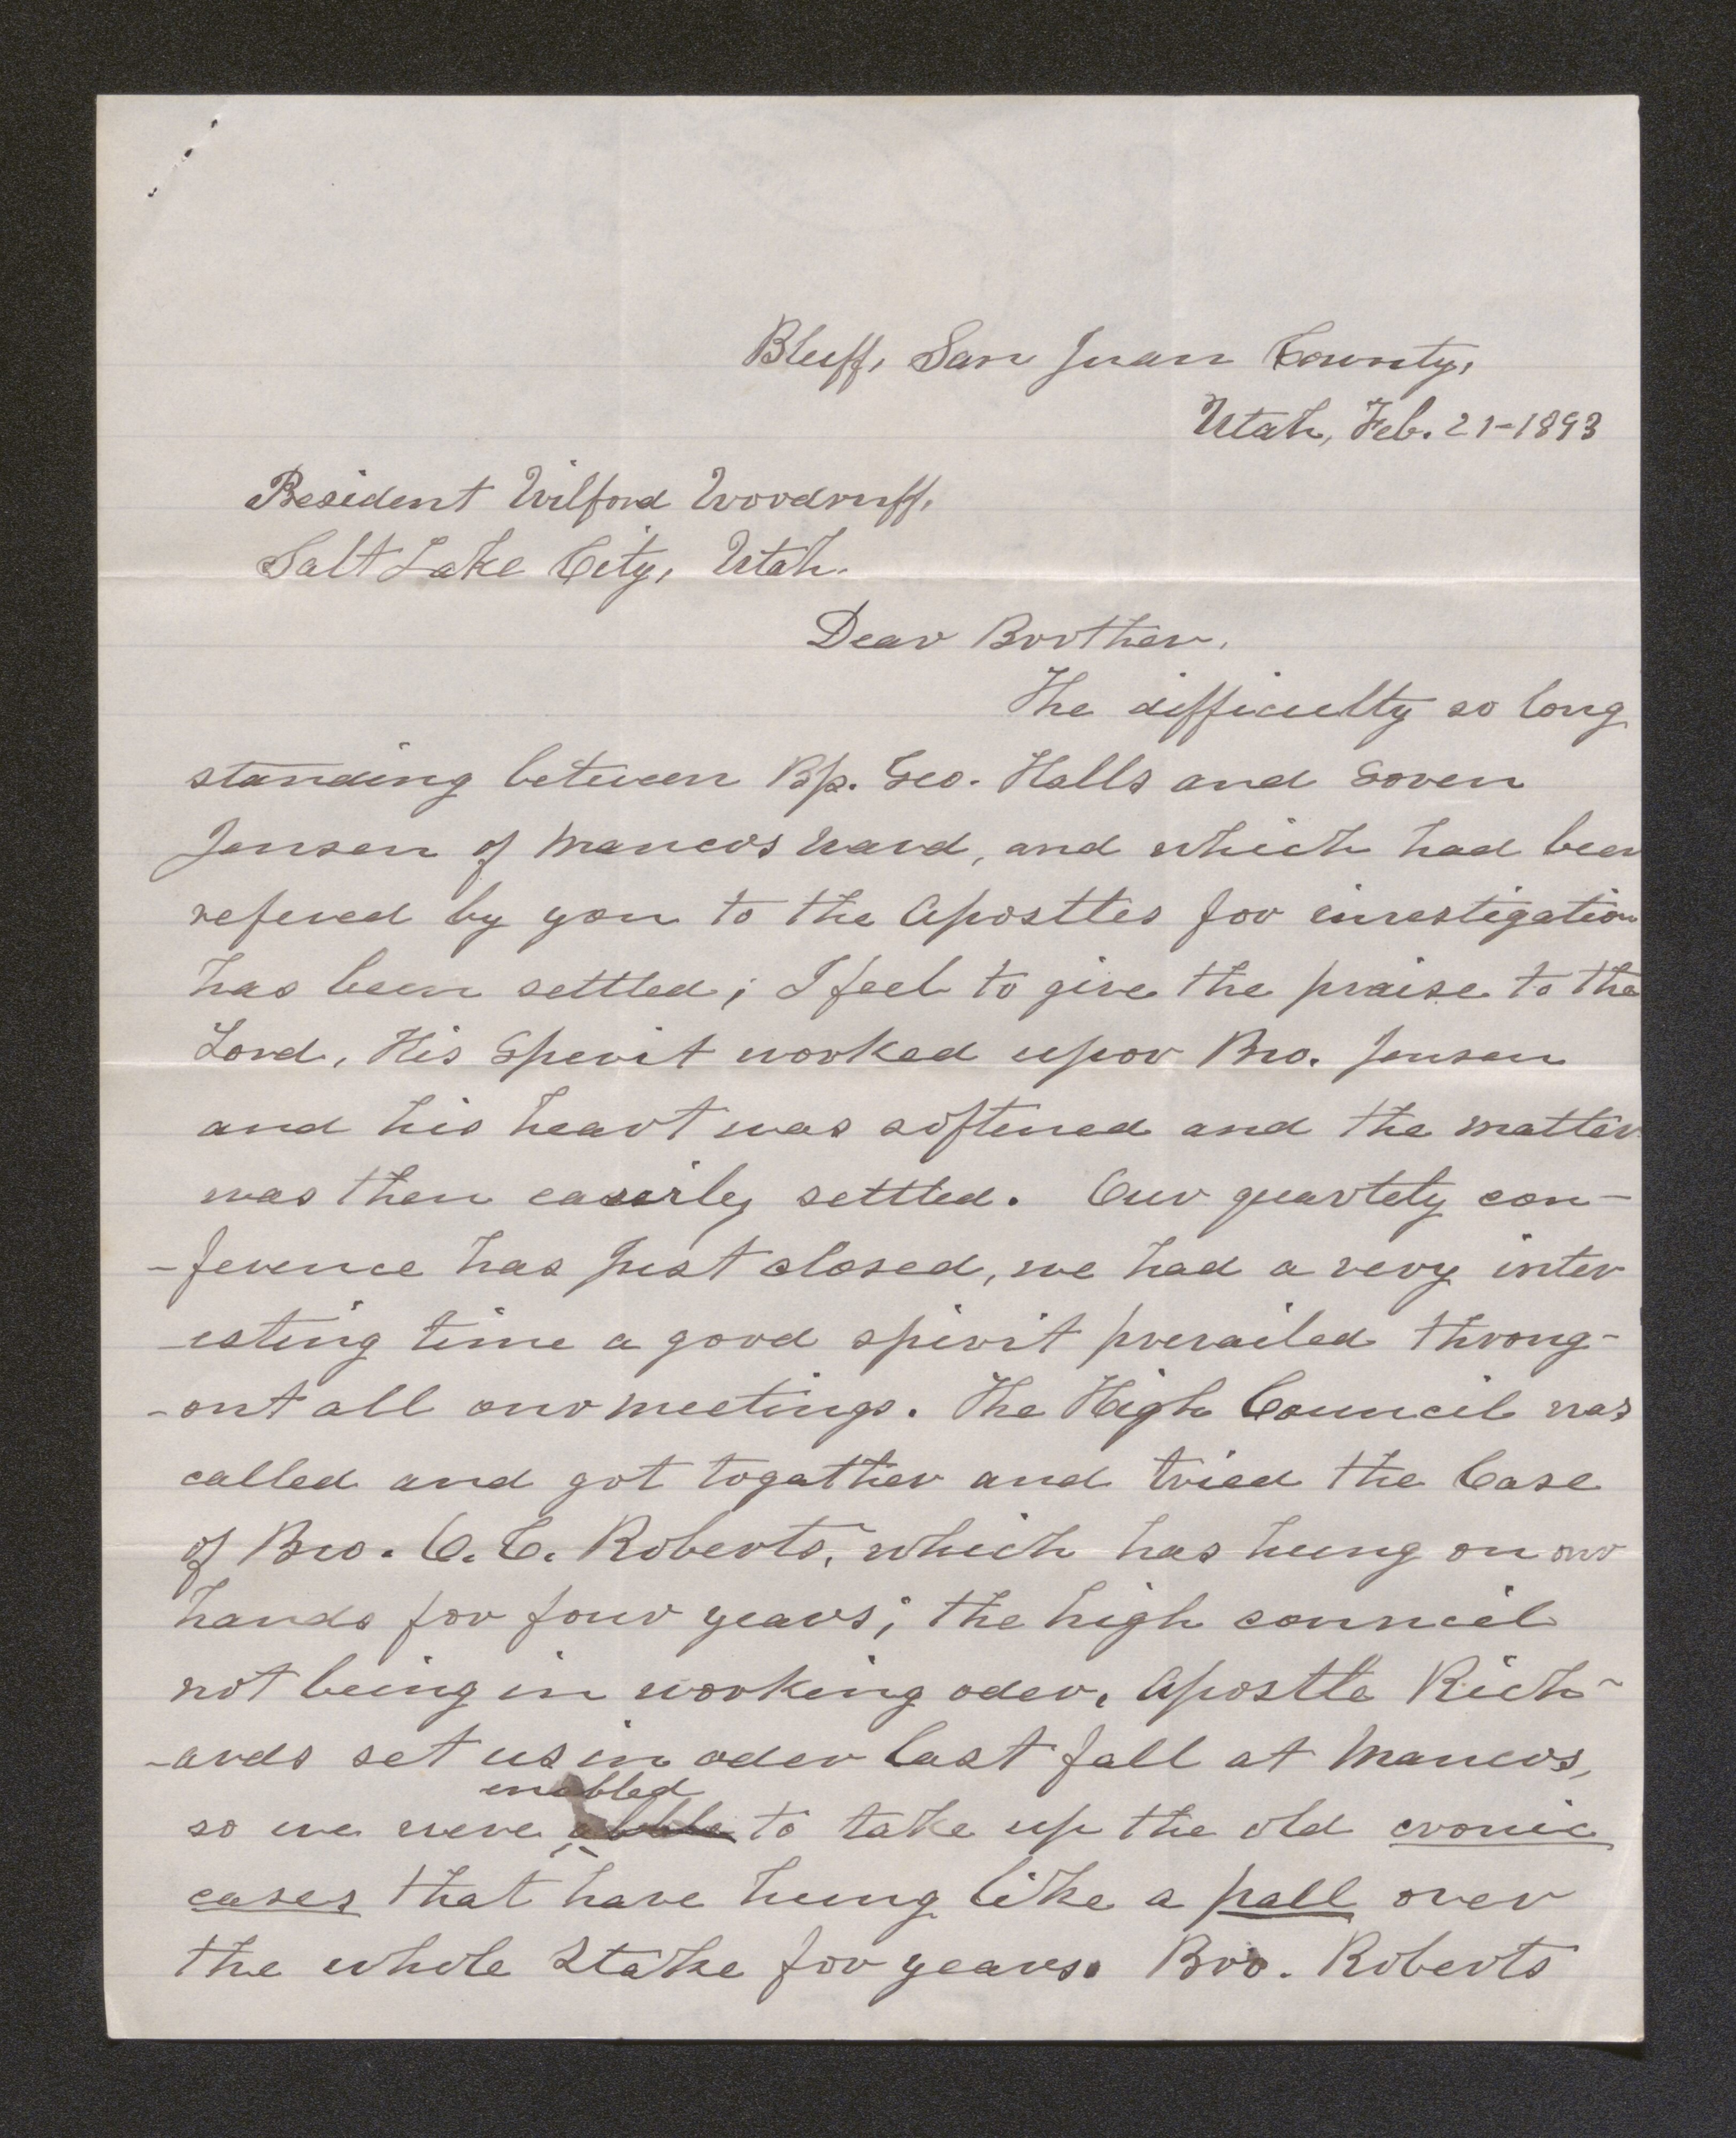 Bluff, San Juan County,
Utah, Feb. 21-1893
President Wilford Woodruff,
Salt Lake City, Utah.
Dear Brother.
The difficulty so long
standing between Bp. Geo. Halls and Soren
Jensen of Mancos Ward, and which had been
refered by you to the Aposttles for investigation
has been settled; I feel to give the praise to the
Lord, His Sperit worked upon Bro. Jensen
and his heart was softened and the matter
was then easirly settled. Our quartely con-
-ference has just closed, we had a very inter
-esting time a good spirit prevailed throug-
-out all our meetings. The High Council was
called and got togather and tried the Case
of Bro. C. C. Roberts, which has hung on our
hands for four years; the high council
not being in working oder, Apostle Rich-
-ards set us in oder last fall at Mancos,
enabled
so we were abble to take up the old cronic
cases that have hung like a pall over
the whole Stake for years. Bro. Roberts